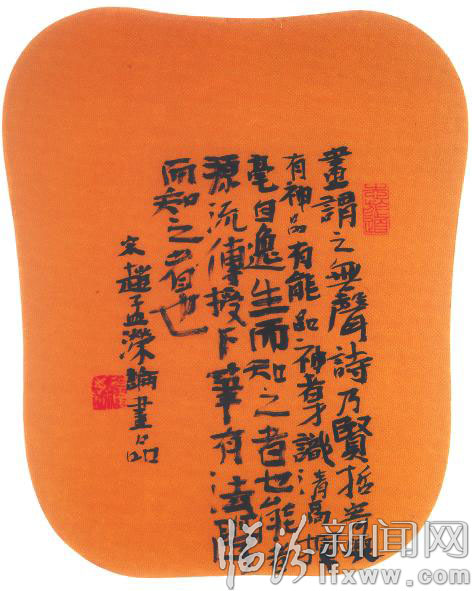 畫謂之無聲詩乃賢哲寄興
有神品有能品神者才識清高揮
毫自逸生而知之者也能者
源流傳授下筆有法
而知之者也
宋趙孟濚論畫品
志於道
临汾新闻网
lfxww.com